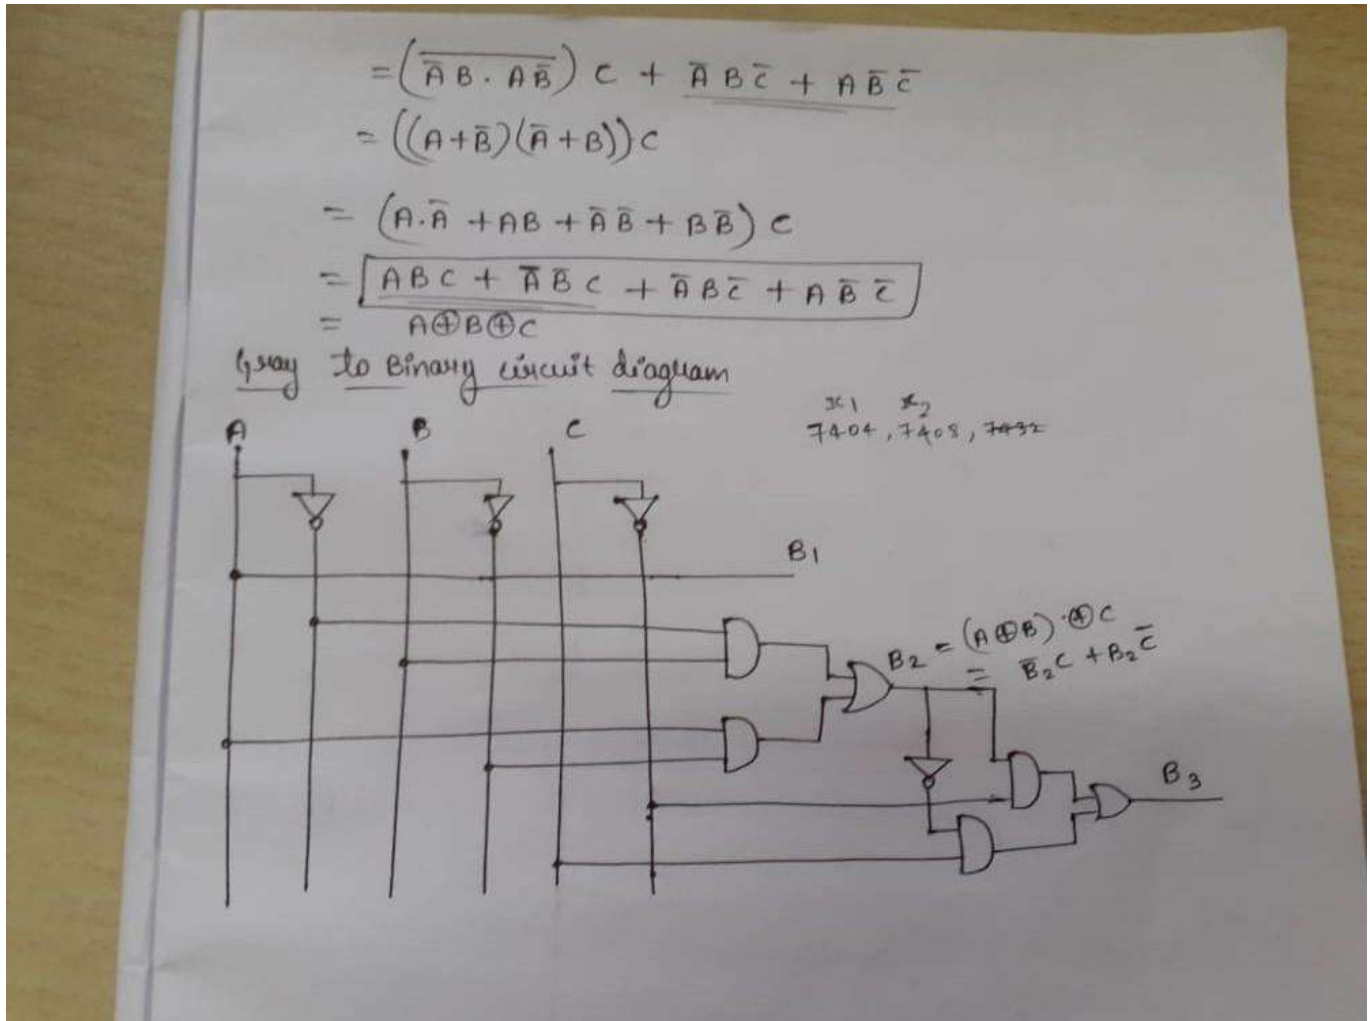 = (\overline{A̅B · AB̅}) C + A̅BC̅ + AB̅C̅
= ((A+B̅)(A̅+B))C
= (A.A̅ + AB + A̅B̅ + BB̅) C
= ABC + A̅B̅C + A̅BC̅ + AB̅C̅
= A⊕B⊕C
Gray to Binary circuit diagram
x1 x2
7404, 7408, 7432
A B C
B1
B2 = (A⊕B)·⊕C
= B̅₂C + B₂C̅
B3